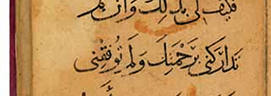 فكيف لي بذلك وان لم
تداركني برحمتك ولم توفقني